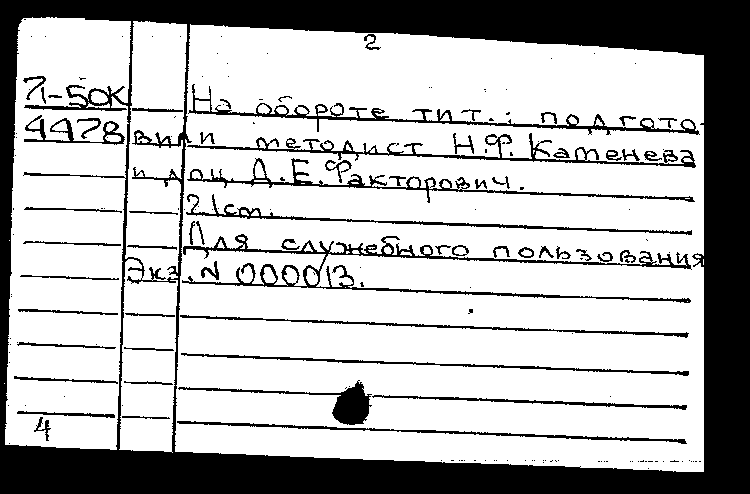 2
Л-50К На обороте тит.: подгото-
4478 вили методист Н.Ф. Каменева
и доц. Д.Е. Факторович.
21 cm.
Для служебного пользования
Экз. N 000013.
4